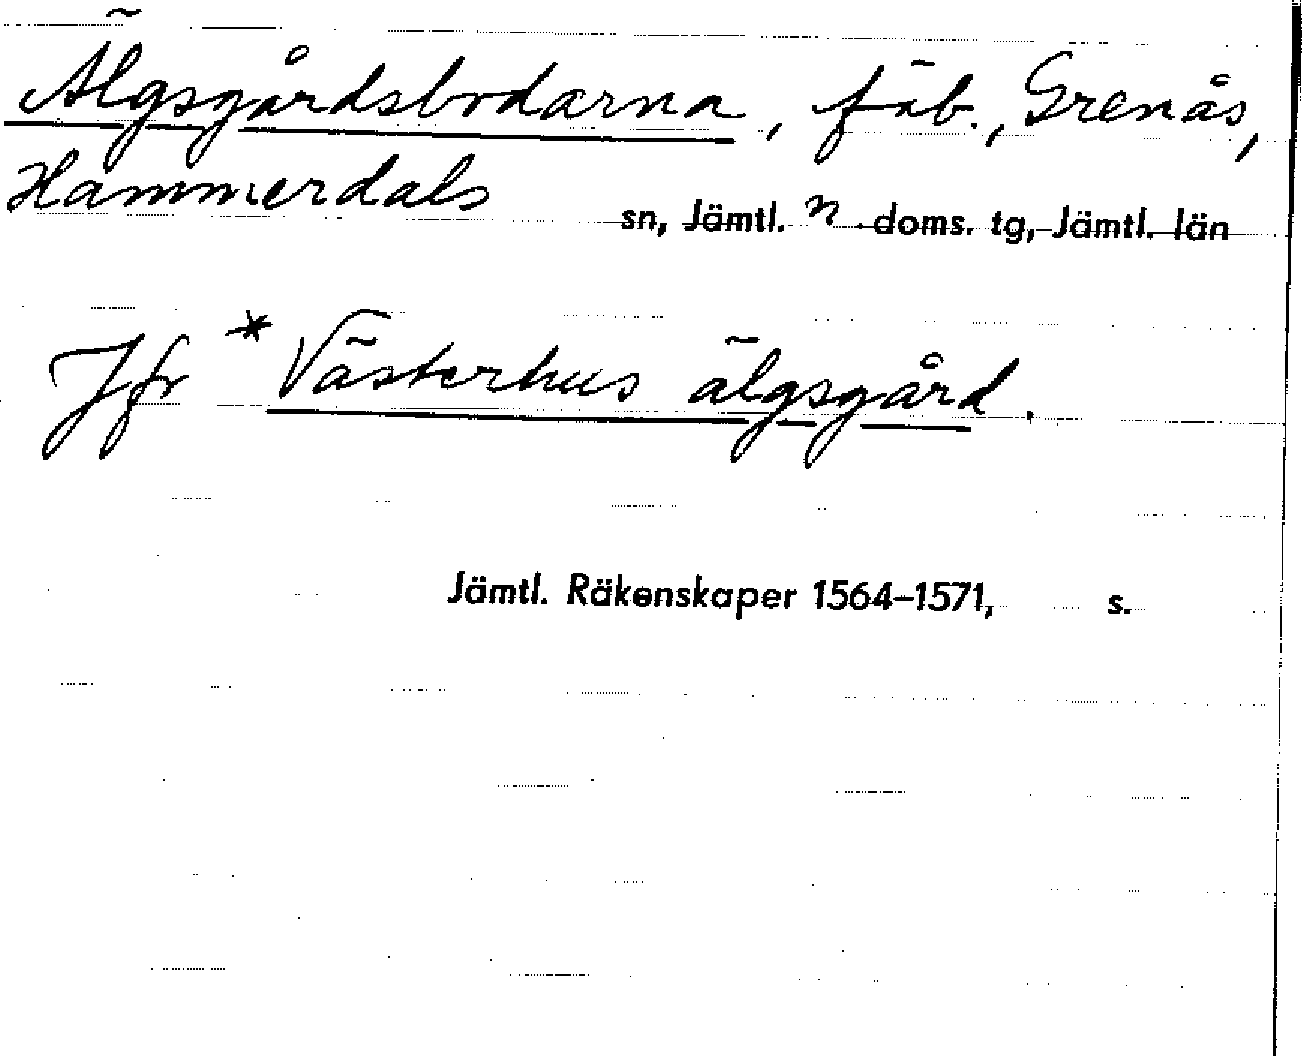 Älgsgårdsbodarna, fäb., Grenås,
Hammerdals sn, Jämtl. n. doms. tg, Jämtl. län
Jfr *Västerhus älgsgård.
Jämtl. Räkenskaper 1564–1571, s.